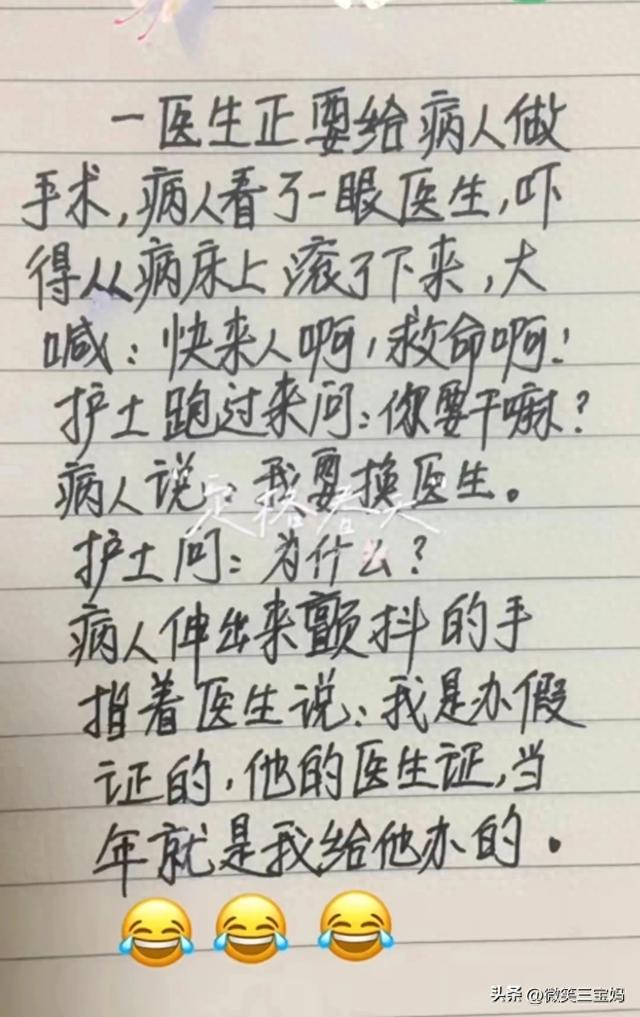 一医生正要给病人做
手术,病人看了一眼医生,吓
得从病床上滚了下来,大
喊:快来人啊,救命啊!
护士跑过来问:你要干嘛?
病人说:我要换医生。
护士问:为什么?
病人伸出来颤抖的手
指着医生说:我是办假
证的,他的医生证,当
年就是我给他办的.
😂😂😂
头条 @微笑三宝妈